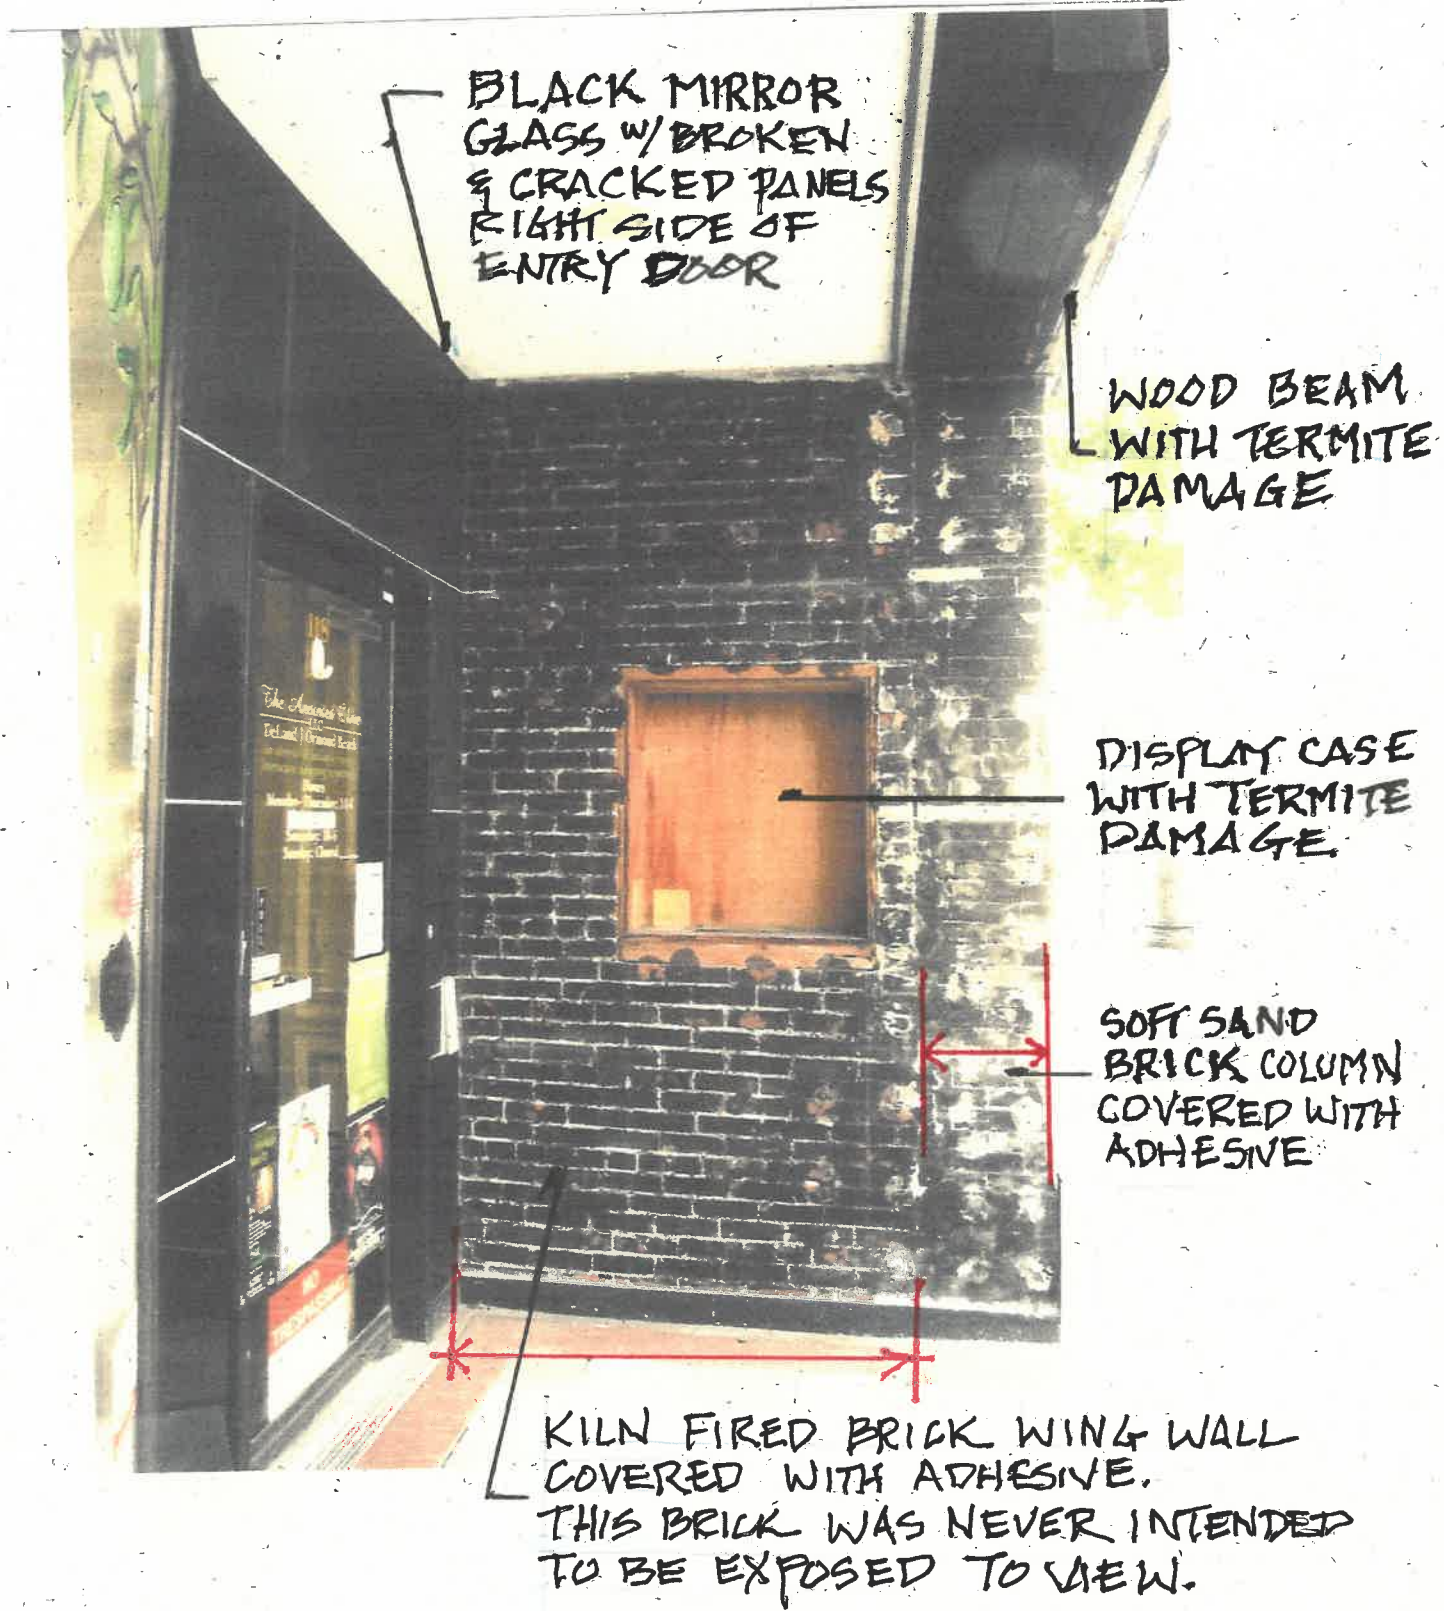 BLACK MIRROR
GLASS W/ BROKEN
& CRACKED PANELS
RIGHT SIDE OF
ENTRY DOOR
WOOD BEAM
WITH TERMITE
DAMAGE
118
The
DeLand | Ormond Beach
Hours
Sunday: Closed
DISPLAY CASE
WITH TERMITE
DAMAGE
SOFT SAND
BRICK COLUMN
COVERED WITH
ADHESIVE
NO
TRESPASSING
KILN FIRED BRICK WING WALL
COVERED WITH ADHESIVE.
THIS BRICK WAS NEVER INTENDED
TO BE EXPOSED TO VIEW.